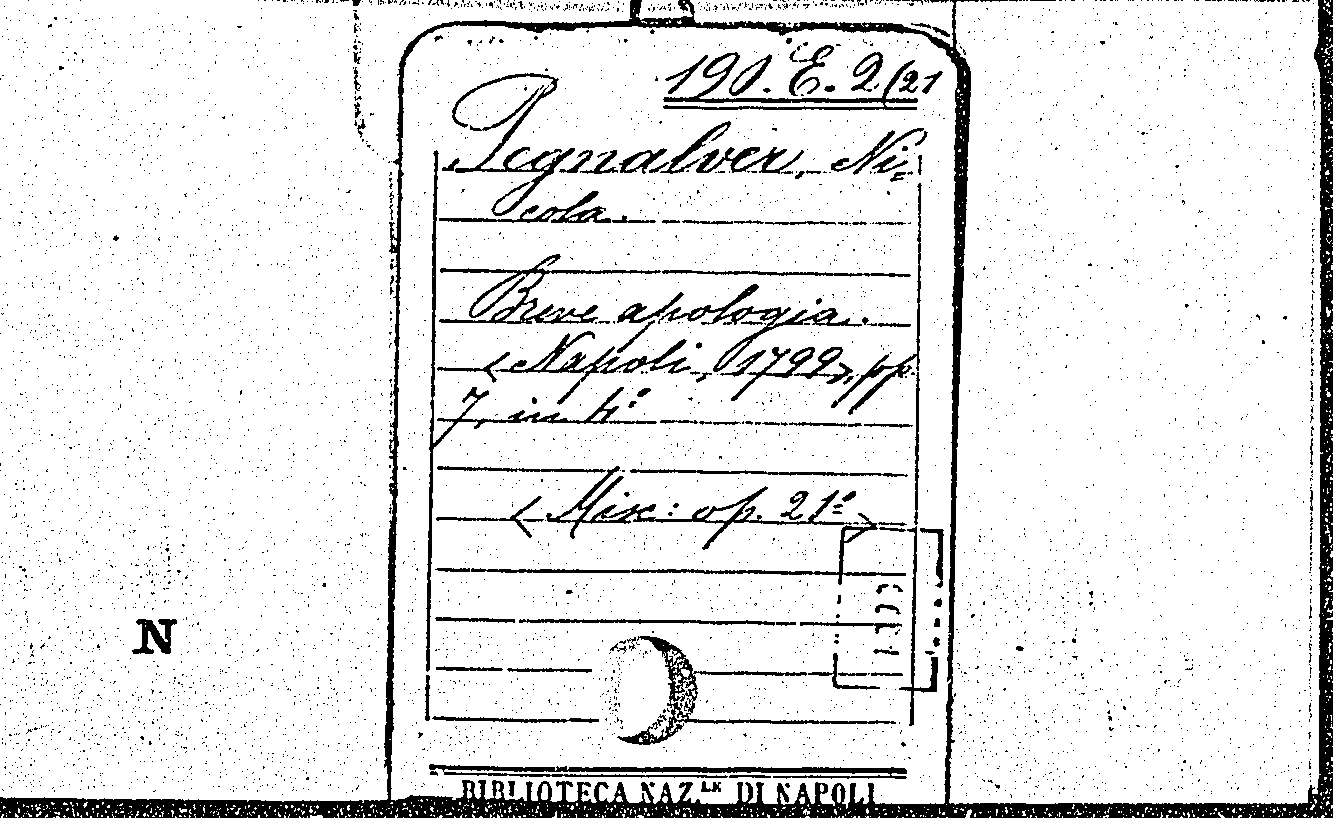 190. E. 2 (21
Pegnalver, Ni-
cola.
Breve apologia.
<Napoli, 1799>, pp.
7, in 4º
<Misc: op. 21º>
N
BIBLIOTECA NAZ.LE DI NAPOLI